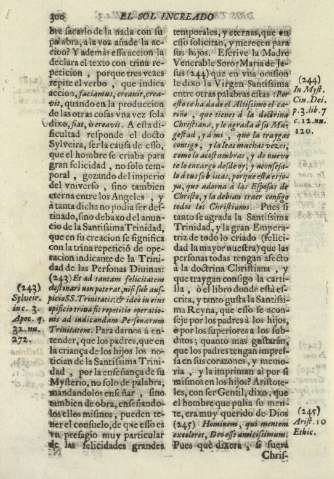 300 EL SOL INCREADO
bre sacarlo de la nada con su
palabra, a la voz añade la ac-
ción? Y además essa accion la
declara el texto con trina re-
peticion, porque tres vezes
repite el verbo, que indica
accion, faciamus, creavit, crea-
vit, quando en la produccion
de las otras cosas vna vez sola
dixo, fiat, & creavit. A esta di-
ficultad responde el docto
Sylveira, ser la causa de esso,
que el hombre se criaba para
gran felicidad, no solo tem-
poral, gozando del imperio
del vniverso, sino tambien
eterna entre los Angeles, y
a tanta dicha no podia ser des-
tinado, sino debaxo del anun-
cio de la Santissima Trinidad,
que en su creacion se significa
con la trina repetició de ope-
racion indicante de la Trini-
dad de las Personas Divinas:
(243) Et ad tantam felicitatem
destinari non poterat, nisi sub aus-
picio SS. Trinitatis: & ideo in eius
opificio trina fit repetitio operatio-
nis ad indicandam Personarum
Trinitatem. Para darnos á en-
tender, que los padres, que en
la criança de los hijos los no-
ticían de la Santissima Trini-
dad, por la enseñança de su
Mysterio, no solo de palabra,
mandandolos enseñar, sino
tambien de obra, enseñando-
los ellos mismos, pueden te-
ner el consuelo, de que esso es
vn presagio muy particular
de las felicidades grandes
(243)
Sylveir.
inc. 3.
Apoc. q.
32. nu.
272.
temporales, y eternas, que en
esso solicitan, y merecen para
sus hijos. Escrive la Madre
Venerable Soror Maria de Je-
sus (244) que en vna ocasion
le dixo la Virgen Santissima
entre otras palabras estas: Por
esto te ha dado el Altissimo el ca-
riño, que tienes á la doctrina
Christiana, y le agrada à su Ma-
gestad, y à mi, que la traygas
contigo, y la leas muchas vezes,
como lo acostumbras, y de nuevo
te lo encargo desde oy, y aconseja-
lo à tus subditas, porque esta es jo-
ya, que adorna à las Esposas de
Christo, y la debian traer consigo
todos los Christianos. Pues si
tanto se agrada la Santissima
Trinidad, y la gran Empera-
triz de todo lo criado (felici-
dad la mayor nuestra) que las
personas todas tengan afecto
à la doctrina Christiana, y
que traygan consigo la carti-
lla, ò el libro donde està es-
crita, y tanto gusta la Santissi-
ma Reyna, que esso se acon-
seje por los padres à los hijos,
ò por los superiores à los sub-
ditos; quanto mas gustaràn
que los padres tengan impres-
sa en sus corazones, y memo-
ria, y la impriman al por si
mismos en los hijos? Aristote-
les, con ser Gentil, dixo, que
el hombre que pulia su men-
te, era muy querido de Dios
(245) Hominem, qui mentem
excoleret, Deo est amicissimum:
Pues què dixera, si fuera
Chris-
(244)
In Myst.
Civ. Dei.
p. 3. lib. 7
c. 12. nu.
120.
(245)
Arist. 10
Ethic.